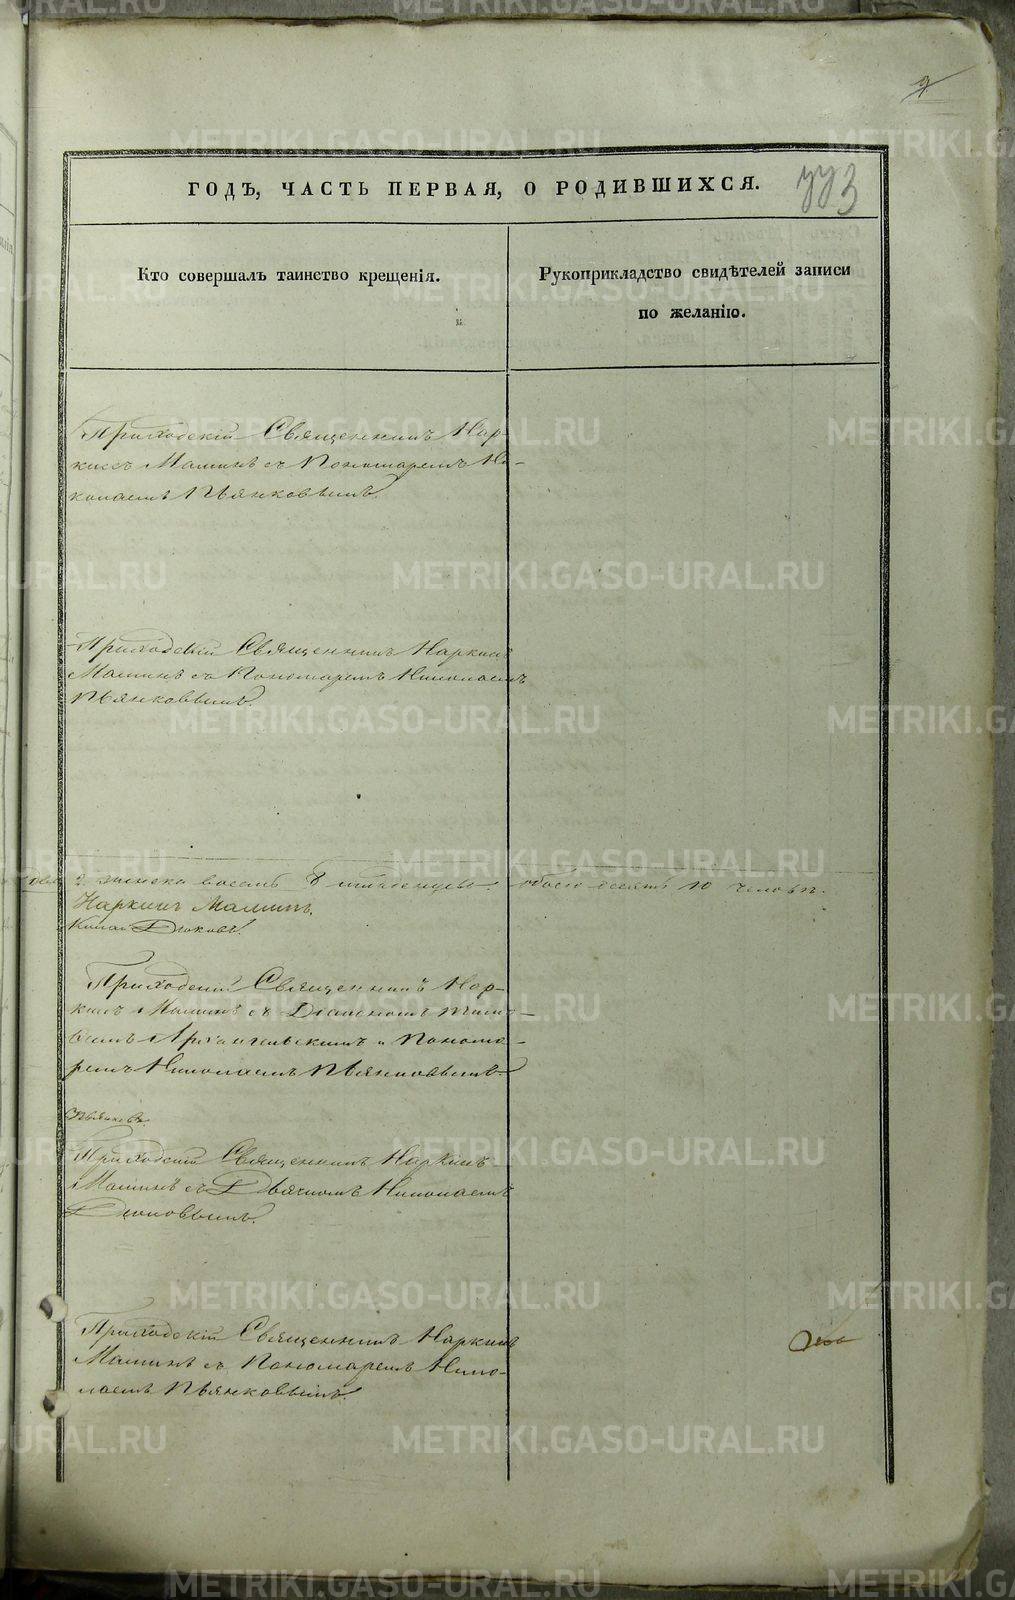 9
ГОДЪ, ЧАСТЬ ПЕРВАЯ, О РОДИВШИХСЯ.
Кто совершалъ таинство крещенія.
Рукоприкладство свидѣтелей записи
по желанію.
Приходскій Священникъ Нар-
киссъ Маминъ съ Пономаремъ Ни-
колаемъ Пьянковымъ.
Приходскій Священникъ Наркисъ
Маминъ съ Пономаремъ Николаемъ
Пьянковымъ.
2 женска восемь 8 обоего десять 10 человѣкъ.
Наркисъ Маминъ.
Дюковъ.
Приходскій Священникъ Нар-
кисъ Маминъ съ Діакономъ
Архангельскимъ и Понома-
ремъ Николаемъ Пьянковымъ.
Пьянковъ.
Приходскій Священникъ Наркисъ
Маминъ съ Дьячкомъ Николаемъ
Дюковымъ.
Приходскій Священникъ Наркисъ
Маминъ съ Пономаремъ Нико-
лаемъ Пьянковымъ.
METRIKI.GASO-URAL.RU